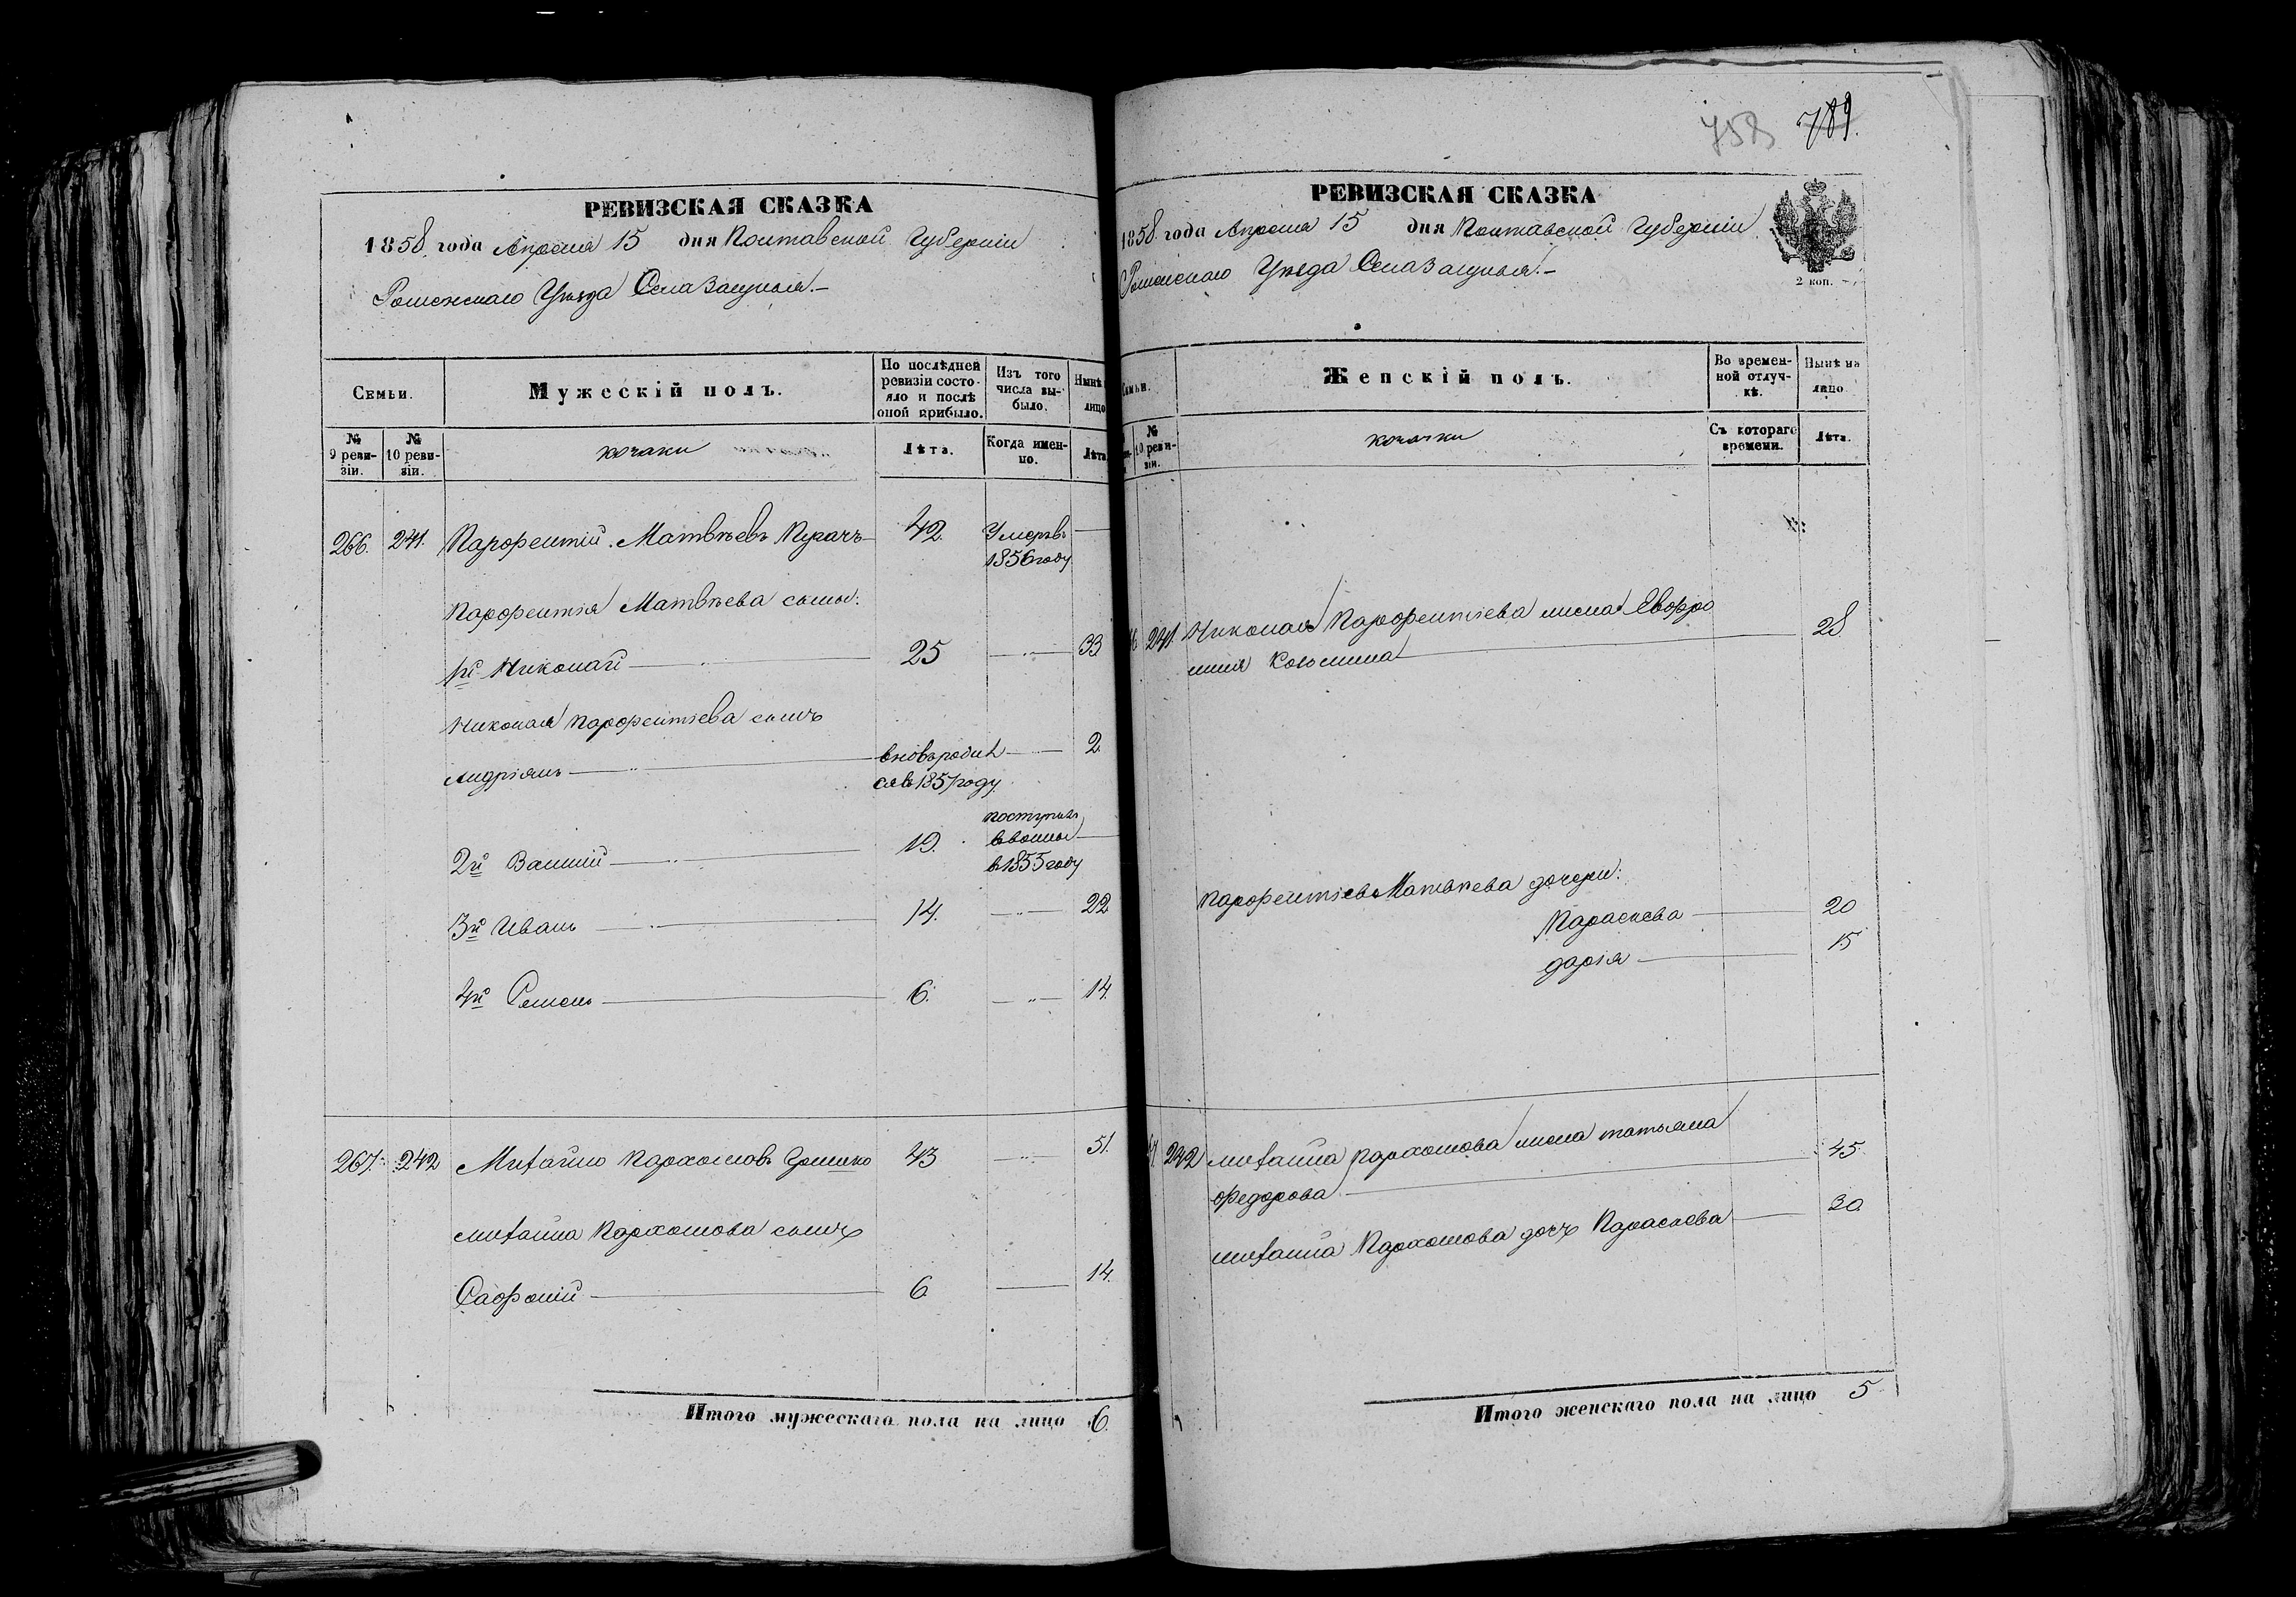 758 789.
РЕВИЗСКАЯ СКАЗКА
1858 года Апреля 15 дня Полтавской Губерніи
Роменскаго Уѣзда Села Засулья.–
Семьи.
Мужескій полъ.
По послѣдней ревизіи состояло и послѣ оной прибыло.
Изъ того числа выбыло.
Нынѣ лицо
№ 9 ревизіи.
№ 10 ревизіи.
козаки
Лѣта.
Когда именно.
Лѣта
266. 241. Парфентій Матвѣевъ Пугачъ 42. Умеръ въ 1856 году
Парфентія Матвѣева сыны:
1й Николай 25 33
Николая Парфентіева сынъ
Андріянъ вновь родил 2
ся въ 1857 году.
2й Василій 19. поступилъ в воины в 1855 году
3й Иванъ 14. 22
4й Семенъ 6. 14.
267. 242 Михайло Пархомовъ 43 51.
Михайла Пархомова сынъ
Сафроній 6 14.
Итого мужескаго пола на лицо 6.
РЕВИЗСКАЯ СКАЗКА
1858 года Апреля 15 дня Полтавской Губерніи
Роменскаго Уѣзда Села Засулья.–
2 коп.
Женскій полъ.
Во временной отлучкѣ.
Нынѣ на лицо.
№ 10 ревизіи.
козачки
Съ котораго времени.
Лѣта.
241 Николая Парфентіева жена Евфро
28
синія Козьмина
Парфентіева Матвѣева дочери:
Параскева 20
Дарія 15
242 Михайла Пархомова жена Татьяна
45
Федорова
Михайла Пархомова дочь Параскева 20
Итого женскаго пола на лицо 5